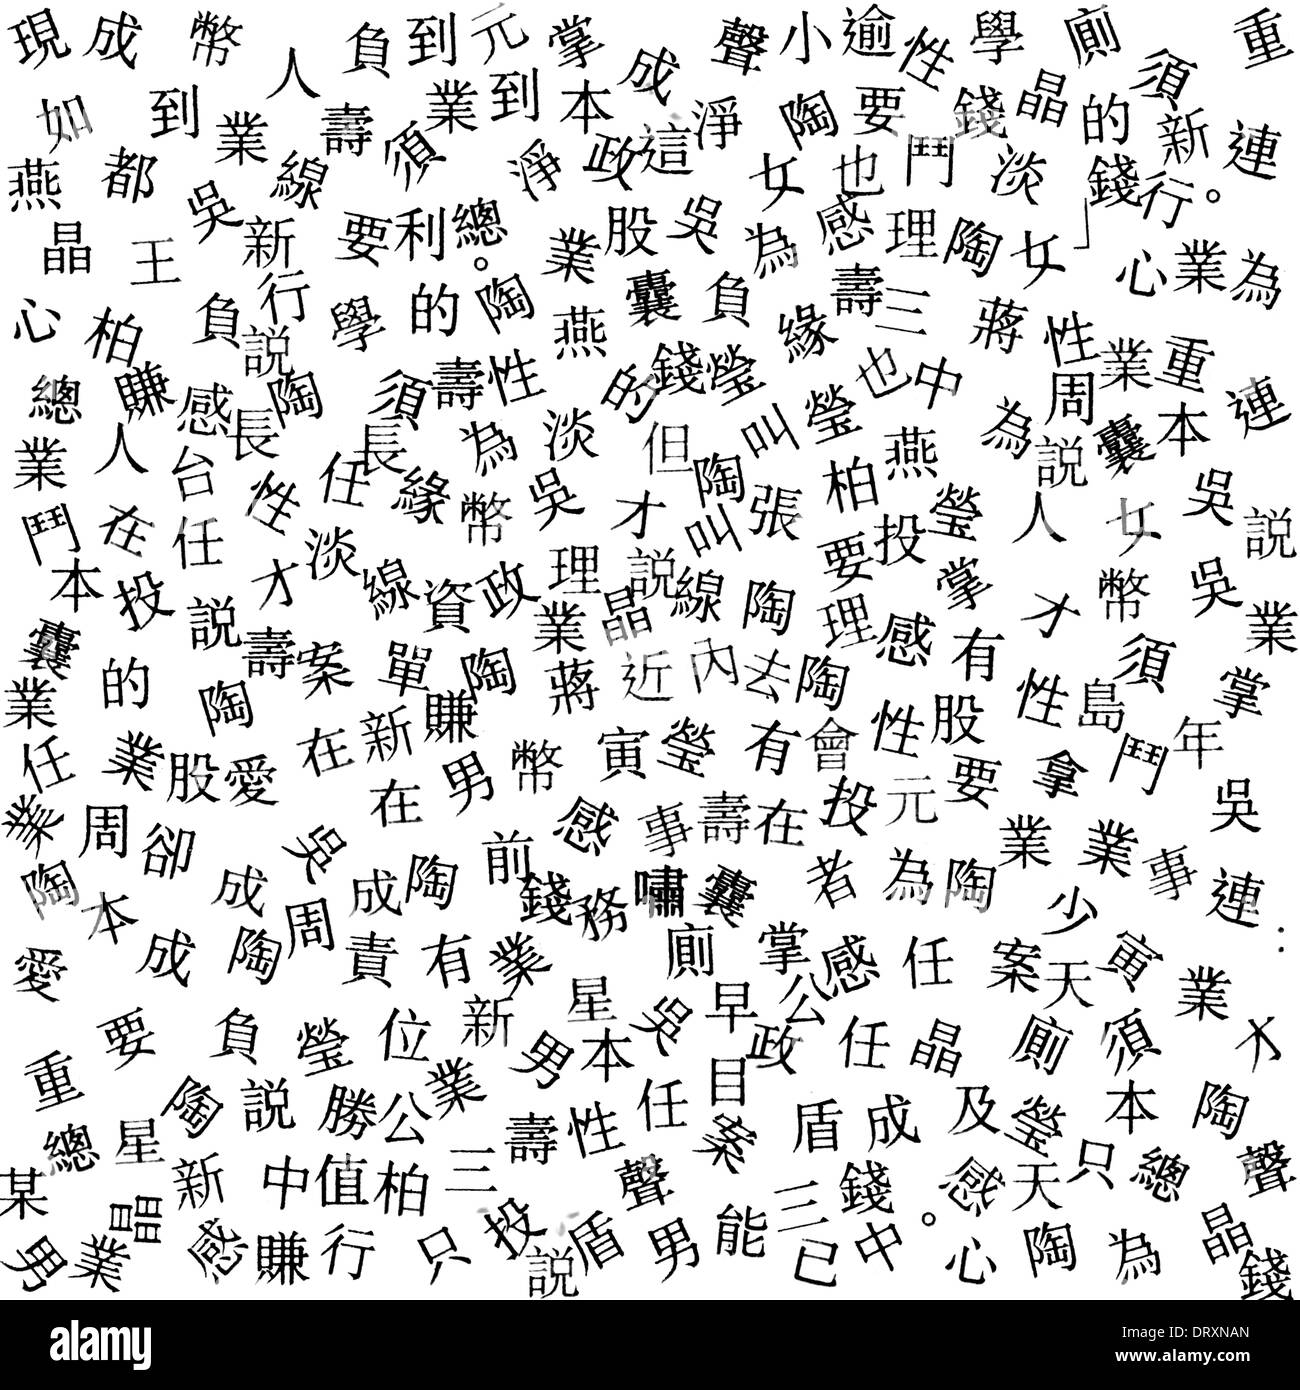 現 成 幣 人 負 到 元 掌 成 聲 小 逾 性 學 廁 須 重
如 到 業 壽 須 業 到 本 政 這 淨 陶 要 錢 晶 的 新 連
燕 都 吳 線 淨 女 也 鬥 淡 錢 行 。
晶 王 新 要 利 總 。 業 股 吳 為 感 理 陶 女 」 心 業 為
心 柏 負 行 說 學 的 陶 燕 囊 負 緣 壽 三 蔣 性 業 重
總 賺 感 長 陶 須 壽 性 的 錢 瑩 叫 瑩 也 中 為 周 本 連
業 人 台 性 任 長 緣 為 淡 但 陶 張 柏 燕 說 囊 吳
鬥 在 任 淡 幣 吳 才 叫 要 投 瑩 人 女 說
本 投 說 才 線 資 政 理 說 線 陶 理 掌 才 幣 吳 業
囊 的 壽 案 單 陶 業 晶 蔣 近 內 去 陶 感 有 性 島 須 掌
業 陶 在 新 賺 寅 瑩 有 會 性 股 要 拿 鬥 年
任 業 股 愛 在 男 幣 感 事 壽 在 投 元 吳
業 周 卻 吳 成 陶 前 錢 務 嘯 囊 者 為 陶 業 業 事 連
陶 本 成 周 少 :
愛 成 陶 責 有 業 廁 掌 感 任 案 天 寅 業
要 負 瑩 位 新 星 吳 早 公
重 業 男 本 政 任 晶 廁 須 才
總 星 陶 說 勝 公 壽 性 任 目 案 盾 成 及 瑩 本 陶
某 晶 新 中 值 柏 三 聲 三 錢 。 感 天 只 總 聲
男 業 感 賺 行 只 投 說 盾 男 能 己 中 心 陶 為 晶 錢
alamy
Image ID: DRXNAN
www.alamy.com